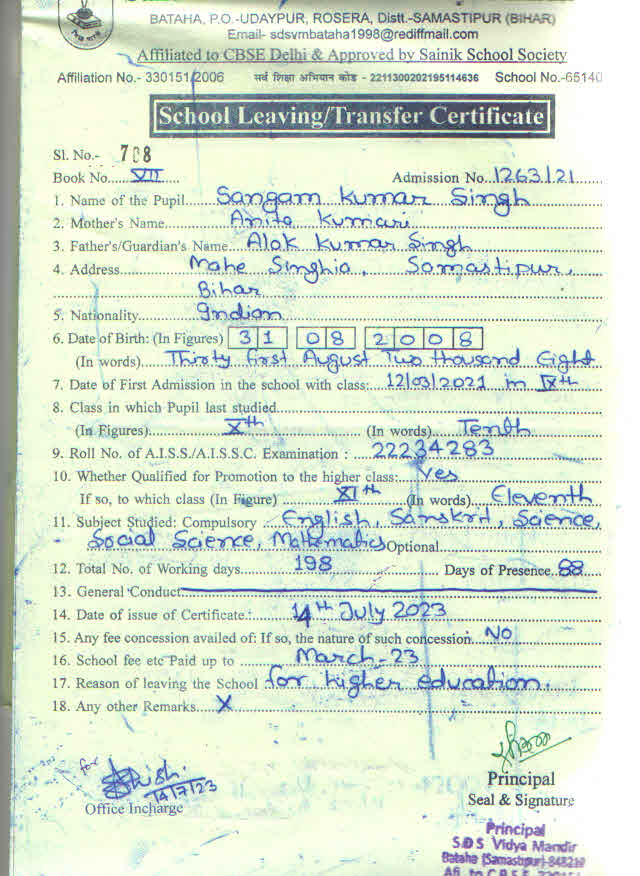 BATAHA, P.O.-UDAYPUR, ROSERA, Distt.-SAMASTIPUR (BIHAR)
Email- sdsvmbataha1998@rediffmail.com
Affiliated to CBSE Delhi & Approved by Sainik School Society
Affiliation No.- 330151/2006 सर्व शिक्षा अभियान कोड - 2211300202195114636 School No.-65140
School Leaving/Transfer Certificate
Sl. No.- 708
Book No. VII Admission No. 1263/21
1. Name of the Pupil Sangam Kumar Singh
2. Mother's Name Anita Kumari
3. Father's/Guardian's Name Alok Kumar Singh
4. Address Mahe Singhia, Samastipur,
Bihar
5. Nationality Indian
6. Date of Birth: (In Figures) 31 08 2008
(In words) Thirty first August Two thousand Eight
7. Date of First Admission in the school with class: 12/03/2021 in IXth
8. Class in which Pupil last studied
(In Figures) Xth (In words) Tenth
9. Roll No. of A.I.S.S./A.I.S.S.C. Examination : 22234283
10. Whether Qualified for Promotion to the higher class: Yes
If so, to which class (In Figure) XIth (In words) Eleventh
11. Subject Studied: Compulsory English, Sanskrit, Science,
Social Science, Mathematics Optional
12. Total No. of Working days 198 Days of Presence 88
13. General Conduct
14. Date of issue of Certificate : 14th July 2023
15. Any fee concession availed of: If so, the nature of such concession. NO
16. School fee etc Paid up to March-23
17. Reason of leaving the School for higher education.
18. Any other Remarks X
for
14/7/23
Office Incharge
Principal
Seal & Signature
Principal
S.D.S Vidya Mandir
Bataha (Samastipur)-848210